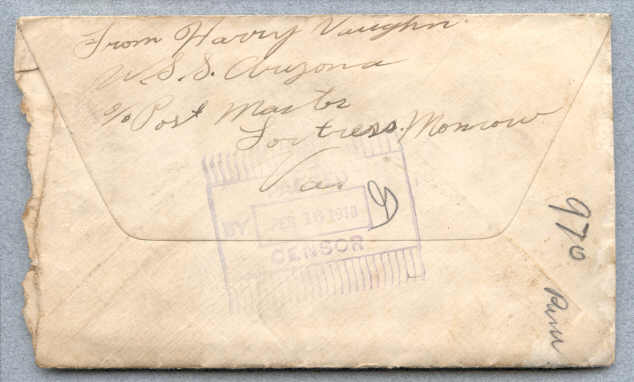 From Harry Vaughn
U.S.S. Arizona
c/o Post Master
Fortress Monrow
Va.
PASSED
BY FEB 16 1918
CENSOR
970